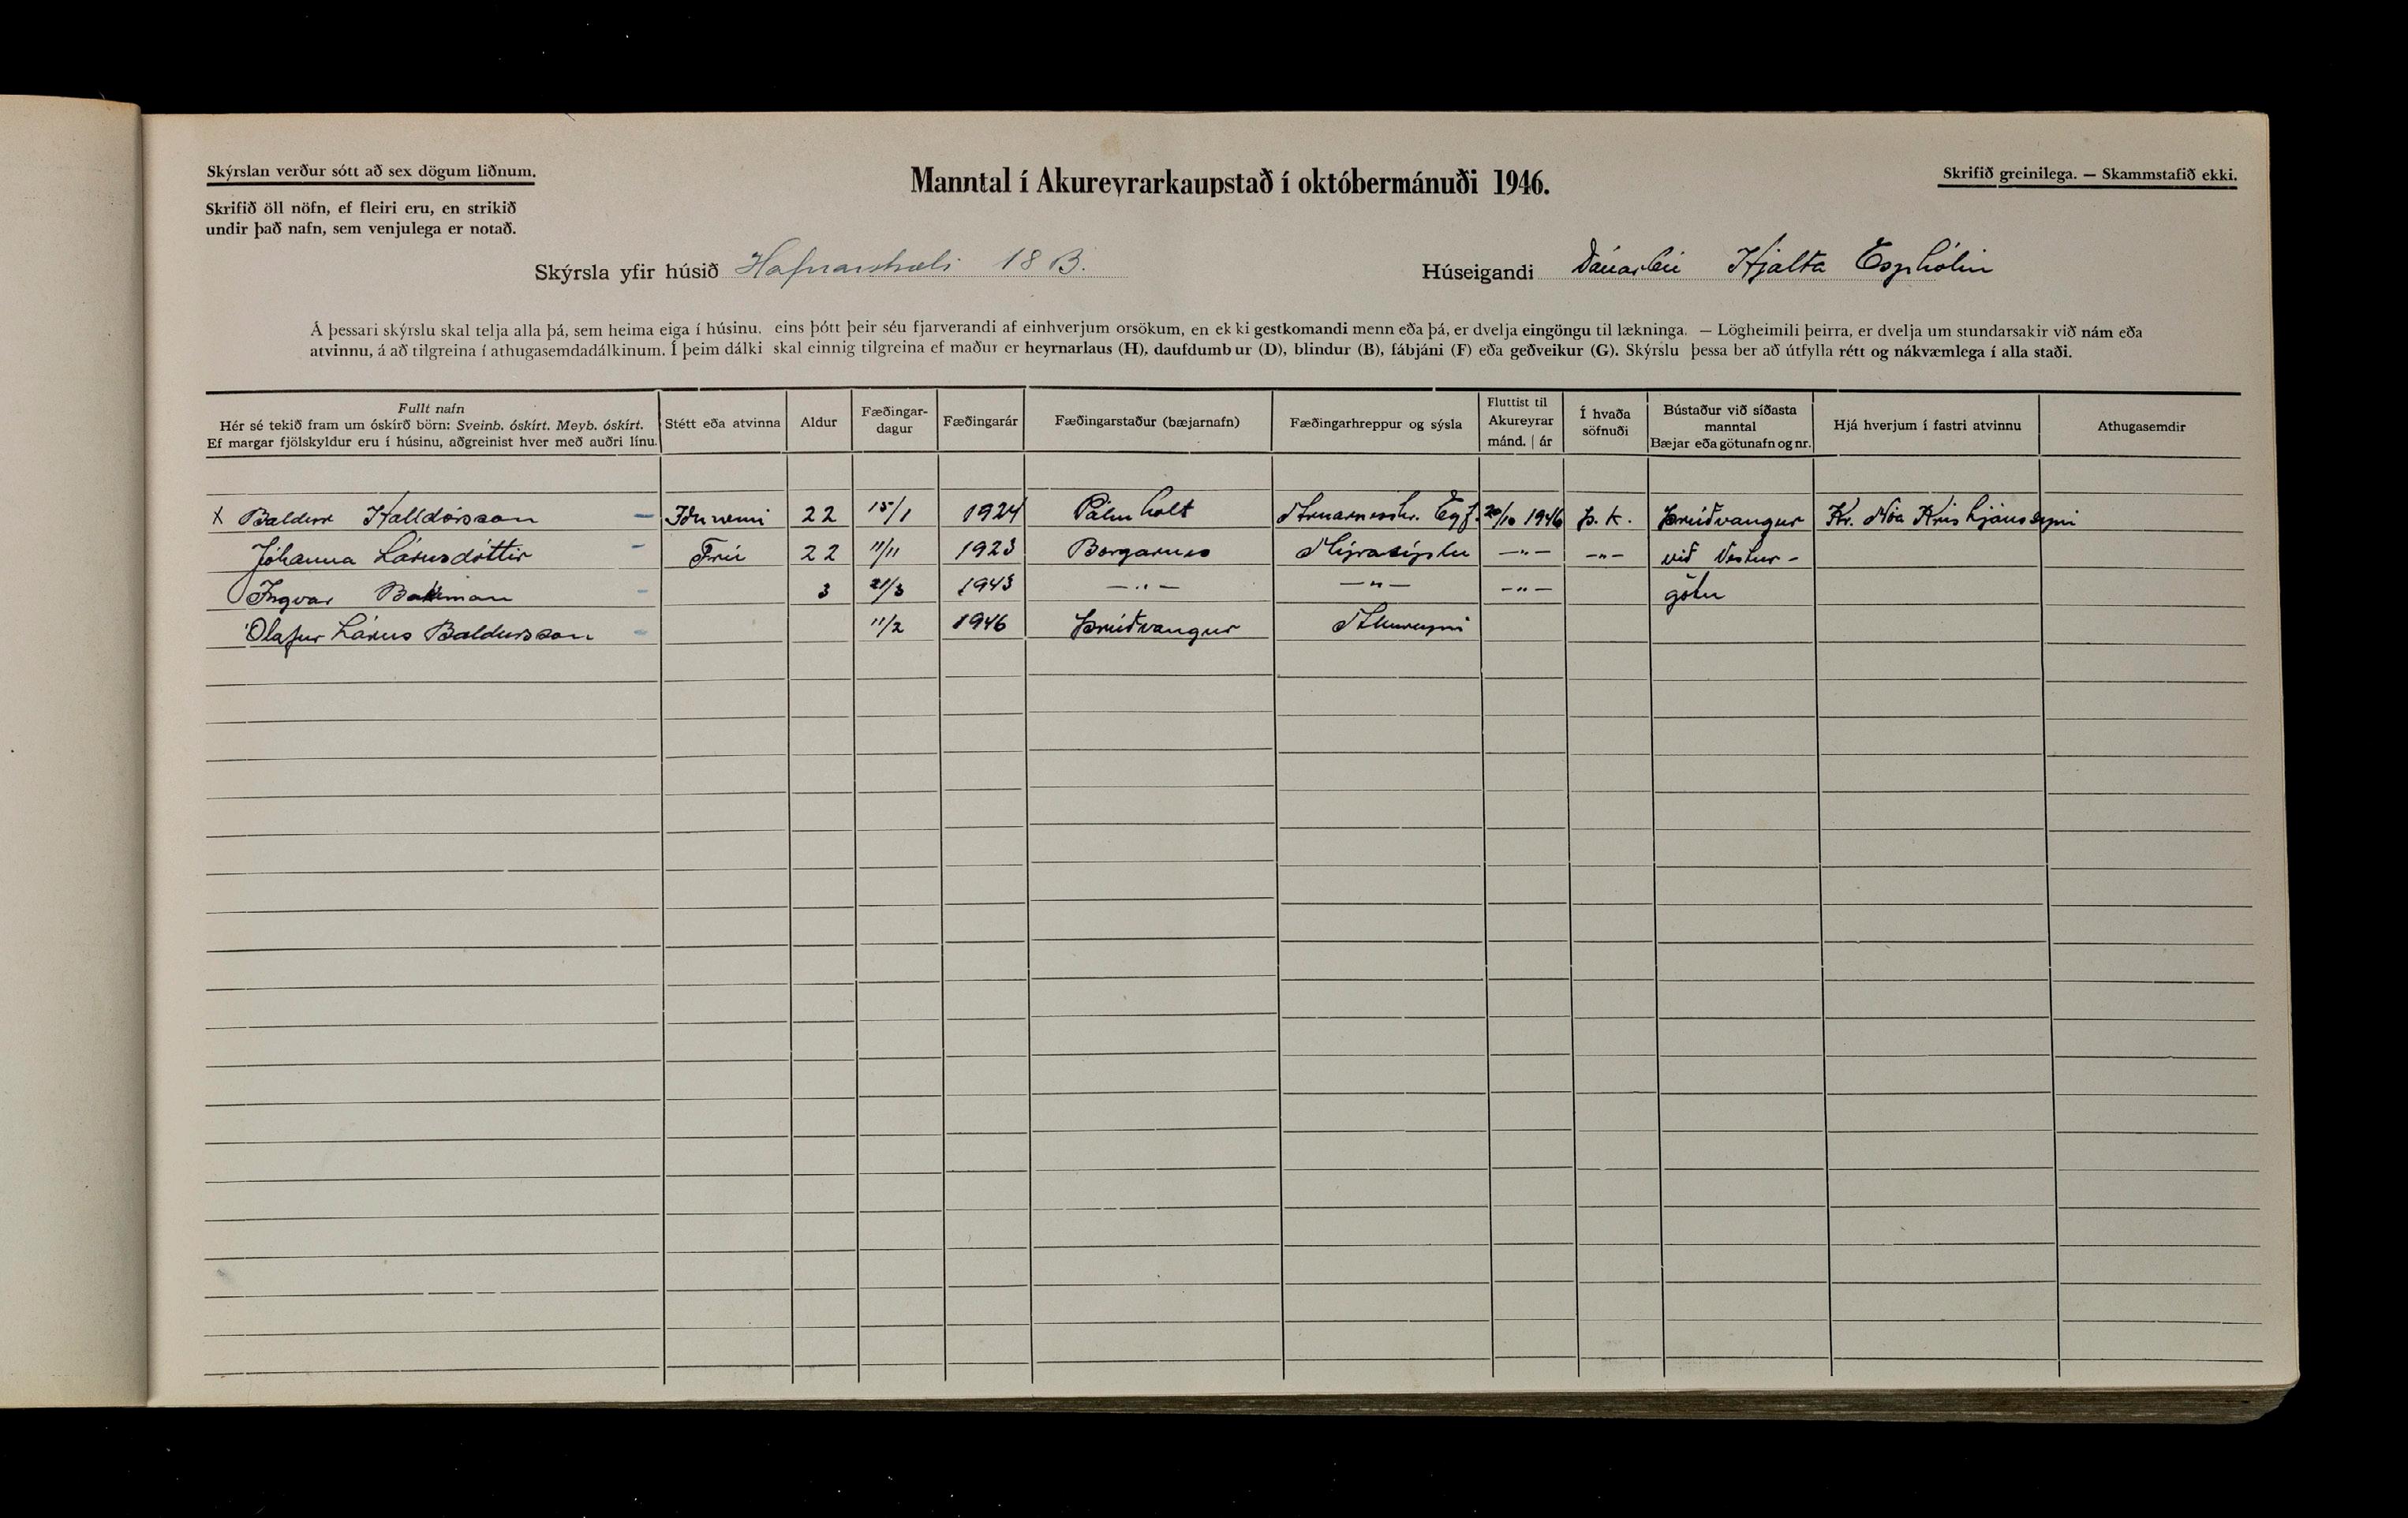 Skýrslan verður sótt að sex dögum liðnum.
Manntal í Akureyrarkaupstað í októbermánuði 1946.
Skrifið greinilega. — Skammstafið ekki.
Skrifið öll nöfn, ef fleiri eru, en strikið
undir það nafn, sem venjulega er notað.
Skýrsla yfir húsið Hafnarstræti 18 B. Húseigandi Dánarbú Hjalta Espholin
Á þessari skýrslu skal telja alla þá, sem heima eiga í húsinu, eins þótt þeir séu fjarverandi af einhverjum orsökum, en ekki gestkomandi menn eða þá, er dvelja eingöngu til lækninga. — Lögheimili þeirra, er dvelja um stundarsakir við nám eða
atvinnu, á að tilgreina í athugasemdadálkinum. Í þeim dálki skal einnig tilgreina ef maður er heyrnarlaus (H), daufdumbur (D), blindur (B), fábjáni (F) eða geðveikur (G). Skýrslu þessa ber að útfylla rétt og nákvæmlega í alla staði.
Fullt nafn
Hér sé tekið fram um óskírð börn: Sveinb. óskírt. Meyb. óskírt.
Ef margar fjölskyldur eru í húsinu, aðgreinist hver með auðri línu.
Stétt eða atvinna
Aldur
Fæðingar-
dagur
Fæðingarár
Fæðingarstaður (bæjarnafn)
Fæðingarhreppur og sýsla
Fluttist til
Akureyrar
mánd. | ár
Í hvaða
söfnuði
Bústaður við síðasta
manntal
Bæjar eða götunafn og nr.
Hjá hverjum í fastri atvinnu
Athugasemdir
X Baldur Halldórsson — Iðnnemi 22 15/1 1924 Pálmholt Arnarneshr. Eyf. 20/10 1946 Þ. K. Þrúðvangur Kr. Nóa Kristjánssyni
Jóhanna Lárusdóttir - Frú 22 11/11 1923 Borgarnes Mýrasýslu —"— —"— við Vestur-
Ingvar - 3 21/3 1943 —"— —"— —"— götu
Ólafur Lárus Baldursson - 11/2 1946 Þrúðvangur Akureyri